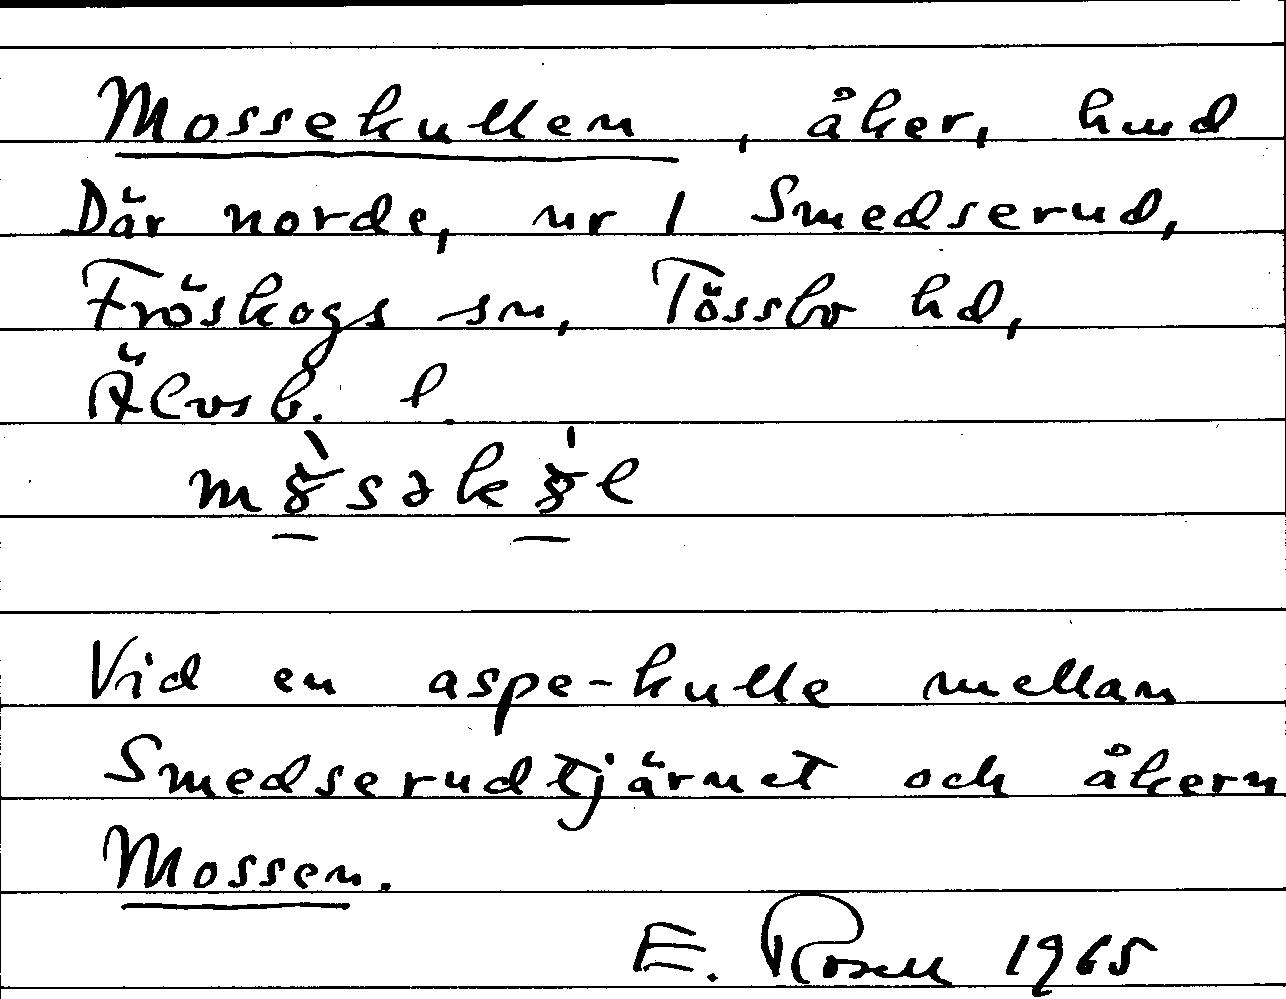 Mossekullen, åker, hmd
Där norde, nr 1 Smedserud,
Fröskogs sn, Tössbo hd,
Älvsb. l.
Vid en aspe-kulle mellan
Smedserudtjärnet och åkern
Mossen.
E. Rosell 1965